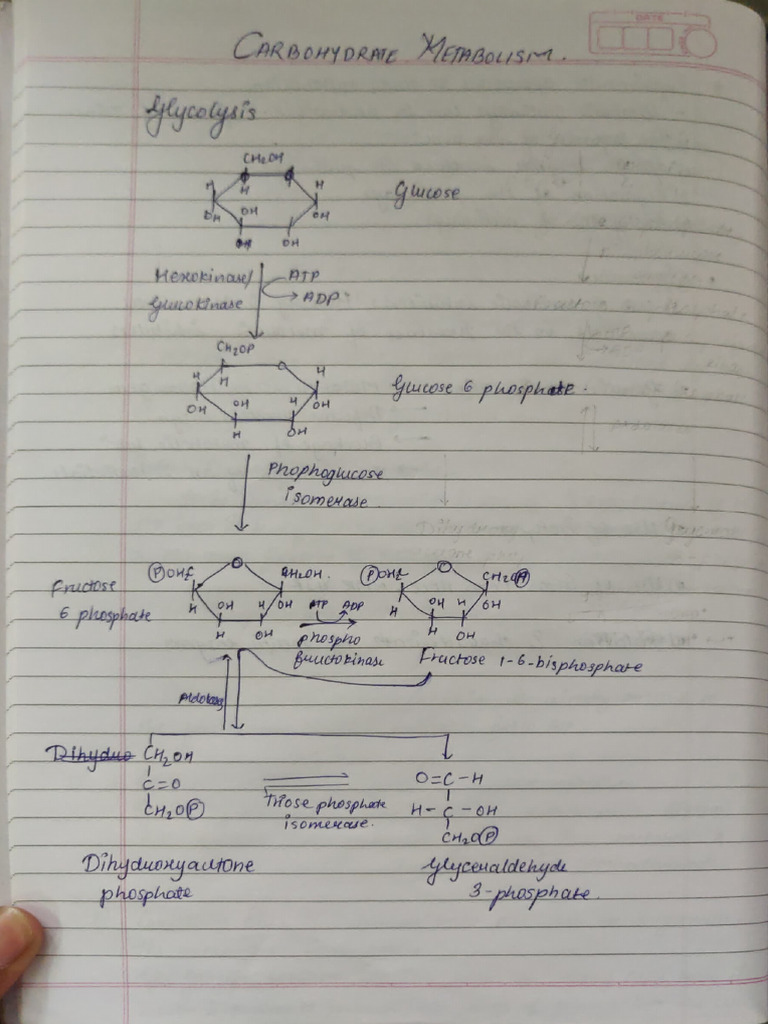 DATE
CARBOHYDRATE METABOLISM.
Glycolysis
CH₂OH
H H H
OH OH OH
OH OH
Glucose
Hexokinase/
Glucokinase
ATP
ADP
CH₂OP
O
H H H
OH OH H OH
H OH
Glucose 6 phosphate.
Phophoglucose
isomerase
Fructose
6 phosphate
P OH₂C O CH₂OH.
H OH H OH
H OH
ATP ADP
phospho
fructokinase
P OH₂C O CH₂O P
H OH H OH
H OH
Fructose 1-6-bisphosphate
Aldolase
Dihydro CH₂OH
C=O
CH₂O P
Triose phosphate
isomerase.
O=C-H
H-C-OH
CH₂O P
Dihydroxyacetone
phosphate
Glyceraldehyde
3-phosphate.